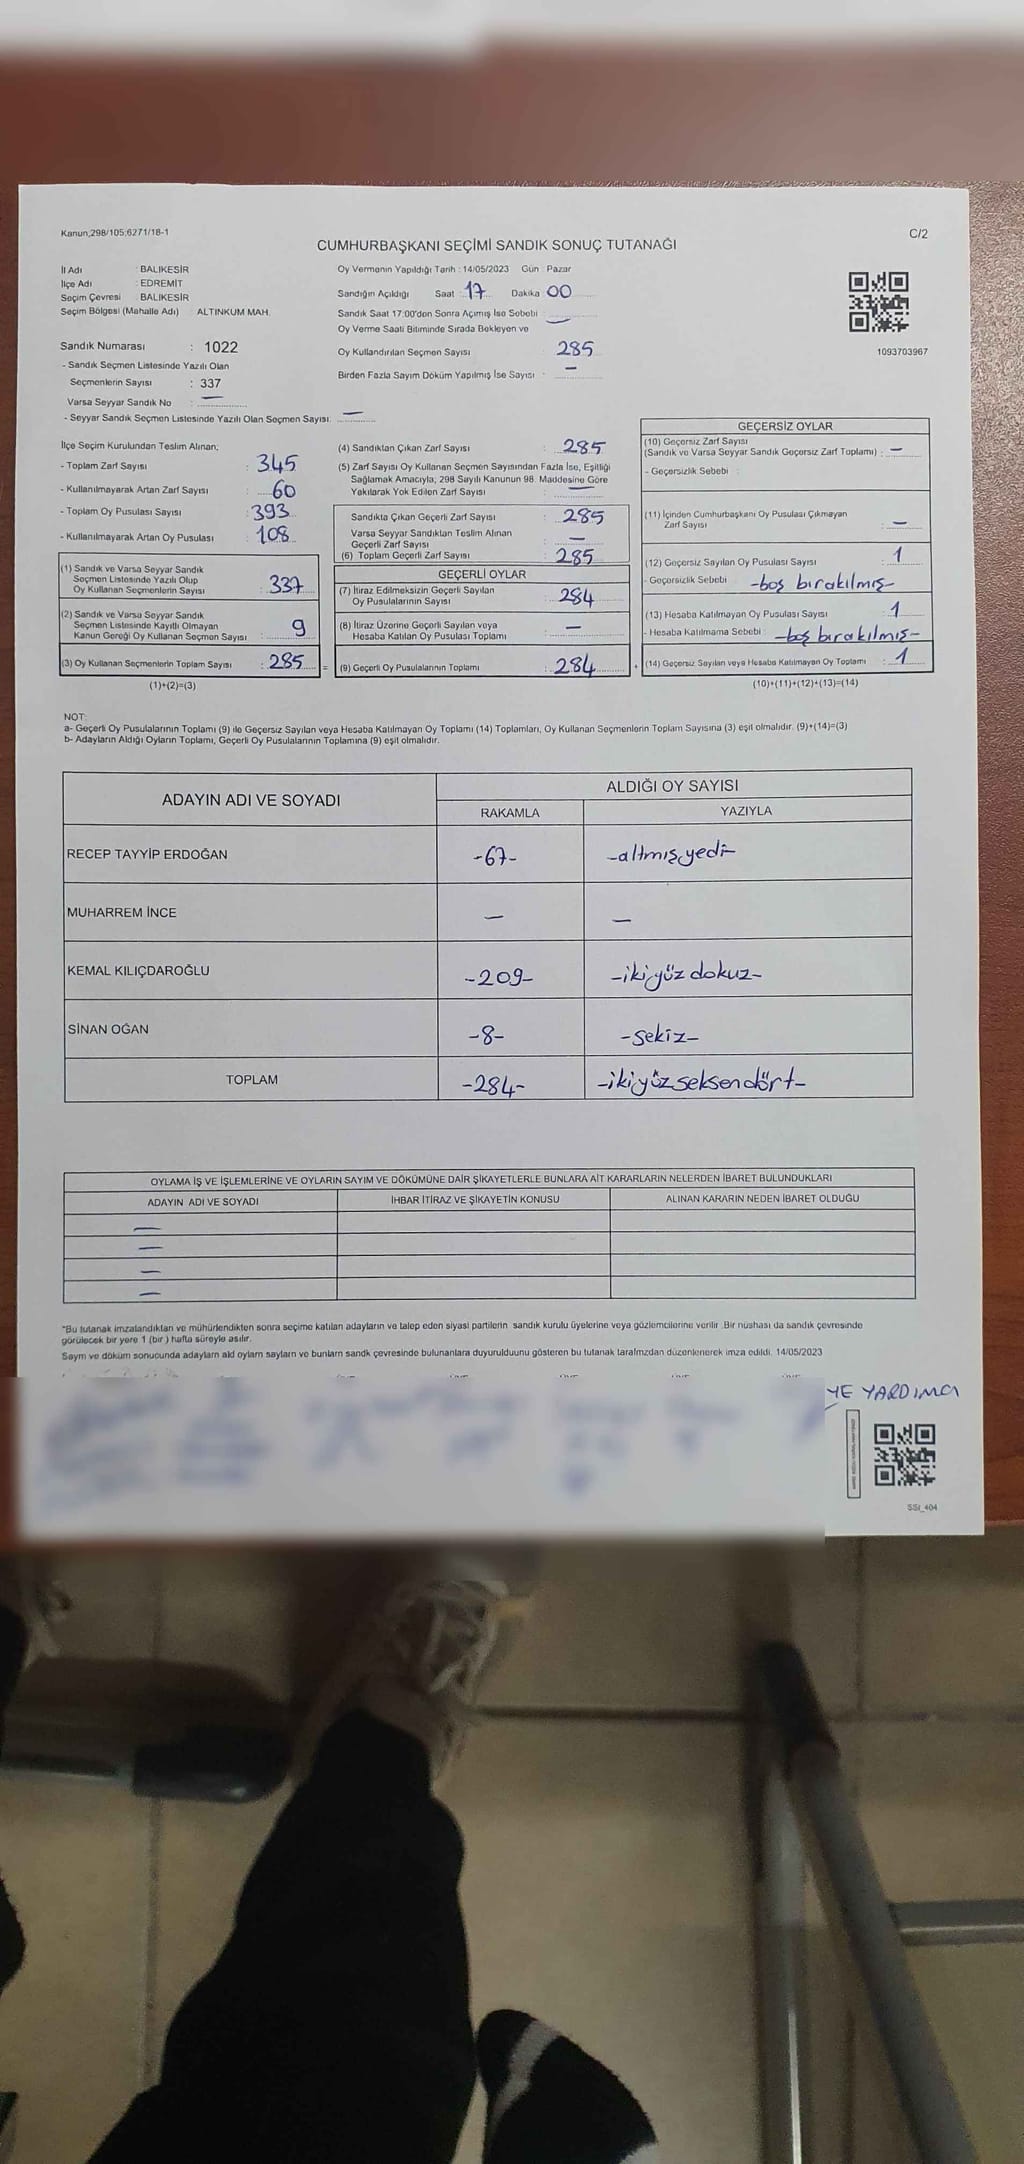 Kanun;298/105;6271/18-1
C/2
CUMHURBAŞKANI SEÇİMİ SANDIK SONUÇ TUTANAĞI
İl Adı : BALIKESİR
İlçe Adı : EDREMİT
Seçim Çevresi : BALIKESİR
Seçim Bölgesi (Mahalle Adı) ALTINKUM MAH.
Sandık Numarası : 1022
- Sandık Seçmen Listesinde Yazılı Olan
Seçmenlerin Sayısı : 337
Varsa Seyyar Sandık No : —
- Seyyar Sandık Seçmen Listesinde Yazılı Olan Seçmen Sayısı: —
Oy Vermenin Yapıldığı Tarih : 14/05/2023 Gün : Pazar
Sandığın Açıldığı Saat : 17 Dakika : 00
Sandık Saat 17:00'den Sonra Açımış İse Sebebi : —
Oy Verme Saati Bitiminde Sırada Bekleyen ve
Oy Kullandırılan Seçmen Sayısı 285
Birden Fazla Sayım Döküm Yapılmış İse Sayısı : —
1093703967
İlçe Seçim Kurulundan Teslim Alınan;
- Toplam Zarf Sayısı : 345
- Kullanılmayarak Artan Zarf Sayısı : 60
- Toplam Oy Pusulası Sayısı : 393
- Kullanılmayarak Artan Oy Pusulası : 108
(1) Sandık ve Varsa Seyyar Sandık
Seçmen Listesinde Yazılı Olup
Oy Kullanan Seçmenlerin Sayısı : 337
(2) Sandık ve Varsa Seyyar Sandık
Seçmen Listesinde Kayıtlı Olmayan
Kanun Gereği Oy Kullanan Seçmen Sayısı : 9
(3) Oy Kullanan Seçmenlerin Toplam Sayısı : 285 =
(1)+(2)=(3)
(4) Sandıktan Çıkan Zarf Sayısı : 285
(5) Zarf Sayısı Oy Kullanan Seçmen Sayısından Fazla İse, Eşitliği
Sağlamak Amacıyla, 298 Sayılı Kanunun 98. Maddesine Göre
Yakılarak Yok Edilen Zarf Sayısı : —
Sandıkta Çıkan Geçerli Zarf Sayısı : 285
Varsa Seyyar Sandıktan Teslim Alınan
Geçerli Zarf Sayısı : —
(6) Toplam Geçerli Zarf Sayısı : 285
GEÇERLİ OYLAR
(7) İtiraz Edilmeksizin Geçerli Sayılan
Oy Pusulalarının Sayısı : 284
(8) İtiraz Üzerine Geçerli Sayılan veya
Hesaba Katılan Oy Pusulası Toplamı : —
(9) Geçerli Oy Pusulalarının Toplamı : 284 +
GEÇERSİZ OYLAR
(10) Geçersiz Zarf Sayısı
(Sandık ve Varsa Seyyar Sandık Geçersiz Zarf Toplamı) : —
- Geçersizlik Sebebi :
(11) İçinden Cumhurbaşkanı Oy Pusulası Çıkmayan
Zarf Sayısı : —
(12) Geçersiz Sayılan Oy Pusulası Sayısı : 1
- Geçersizlik Sebebi -boş bırakılmış-
(13) Hesaba Katılmayan Oy Pusulası Sayısı : 1
- Hesaba Katılmama Sebebi : -boş bırakılmış-
(14) Geçersiz Sayılan veya Hesaba Katılmayan Oy Toplamı : 1
(10)+(11)+(12)+(13)=(14)
NOT:
a- Geçerli Oy Pusulalarının Toplamı (9) ile Geçersiz Sayılan veya Hesaba Katılmayan Oy Toplamı (14) Toplamları, Oy Kullanan Seçmenlerin Toplam Sayısına (3) eşit olmalıdır. (9)+(14)=(3)
b- Adayların Aldığı Oyların Toplamı, Geçerli Oy Pusulalarının Toplamına (9) eşit olmalıdır.
ADAYIN ADI VE SOYADI
ALDIĞI OY SAYISI
RAKAMLA YAZIYLA
RECEP TAYYİP ERDOĞAN -67- -altmışyedi-
MUHARREM İNCE — —
KEMAL KILIÇDAROĞLU -209- -ikiyüz dokuz-
SİNAN OĞAN -8- -sekiz-
TOPLAM -284- -ikiyüzseksendört-
OYLAMA İŞ VE İŞLEMLERİNE VE OYLARIN SAYIM VE DÖKÜMÜNE DAİR ŞİKAYETLERLE BUNLARA AİT KARARLARIN NELERDEN İBARET BULUNDUKLARI
ADAYIN ADI VE SOYADI İHBAR İTİRAZ VE ŞİKAYETİN KONUSU ALINAN KARARIN NEDEN İBARET OLDUĞU
—
—
—
—
*Bu tutanak imzalandıktan ve mühürlendikten sonra seçime katılan adayların ve talep eden siyasi partilerin sandık kurulu üyelerine veya gözlemcilerine verilir .Bir nüshası da sandık çevresinde
görülecek bir yere 1 (bir ) hafta süreyle asılır.
Saym ve döküm sonucunda adaylarn ald oylarn saylarn ve bunlarn sandk çevresinde bulunanlara duyurulduunu gösteren bu tutanak tarafmzdan düzenlenerek imza edildi. 14/05/2023
YE YARDIMCI
SSt_404